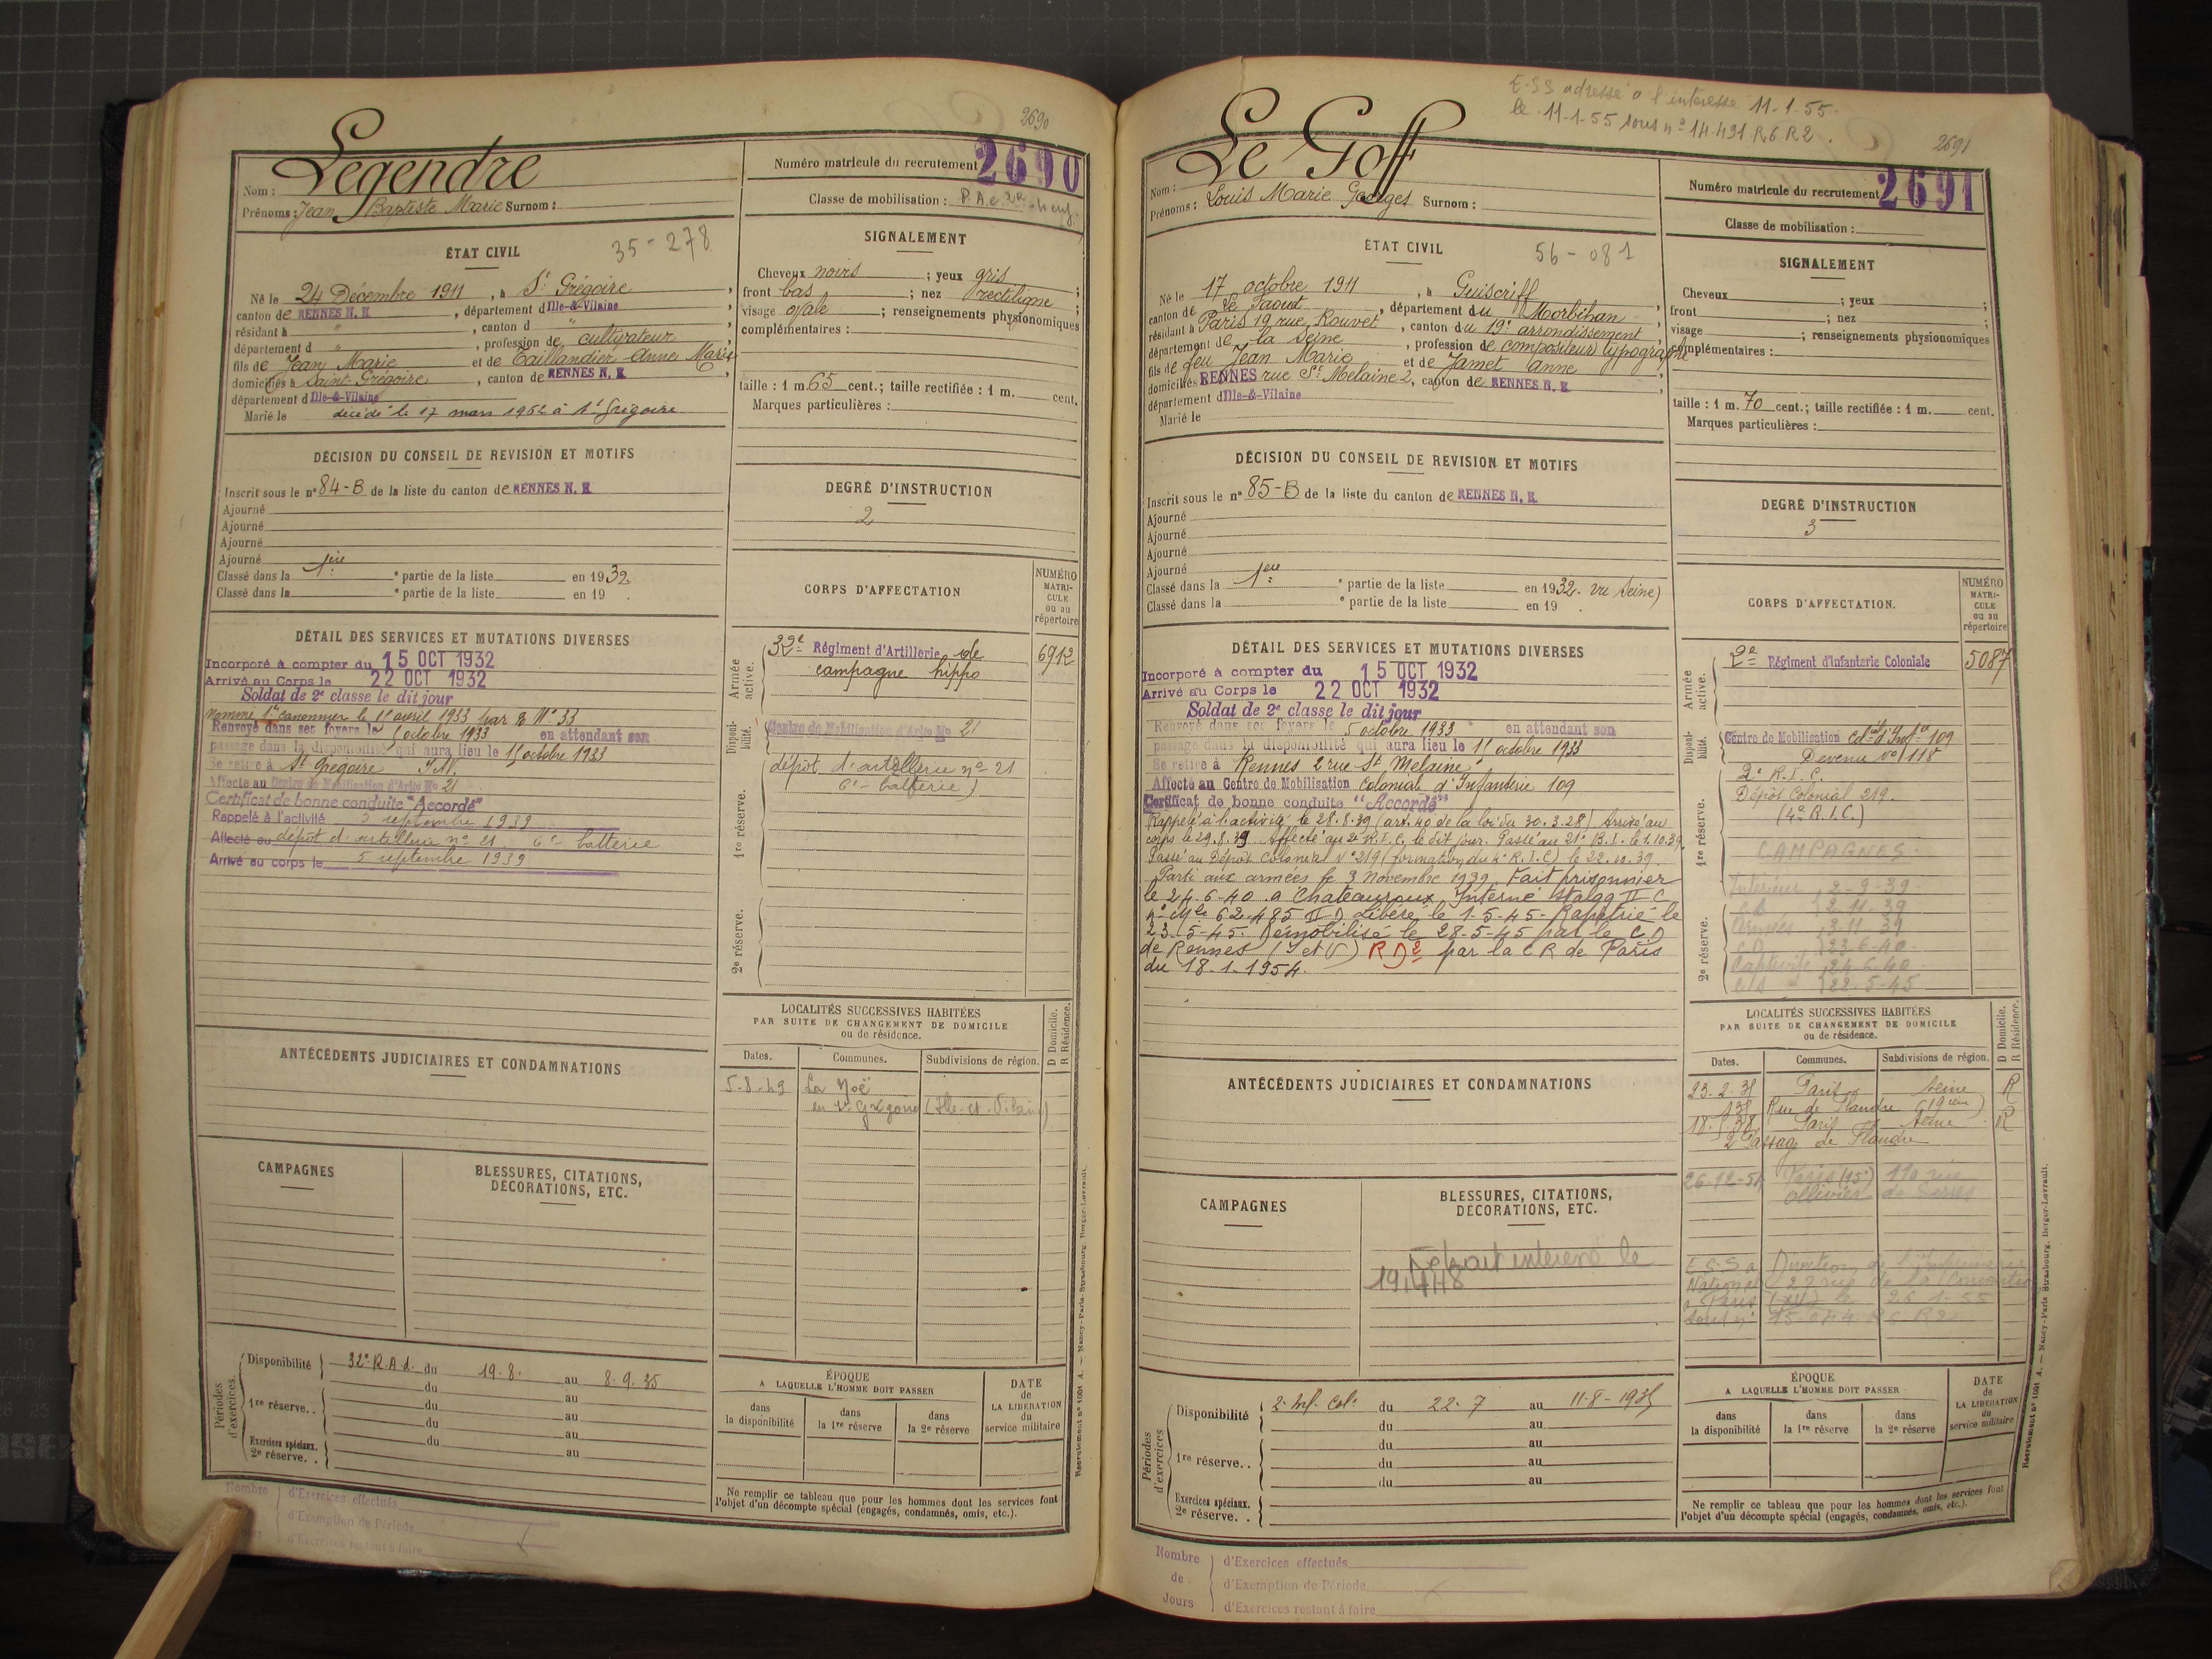 2690
Legendre
Nom :
Prénoms : Jean Baptiste Marie Surnom :
Numéro matricule du recrutement 2690
Classe de mobilisation :
ÉTAT CIVIL
35-278
Né le 24 Décembre 1911, à St Grégoire,
canton de RENNES N. E, département d Ille-&-Vilaine
résidant à ", canton d ",
département d ", profession de cultivateur
fils de Jean Marie et de Taillandier Anne Marie
domiciliés à Saint Grégoire, canton de RENNES N. E
département d Ille-&-Vilaine
Marié le décédé le 17 mars 1962 à St Grégoire
SIGNALEMENT
Cheveux noirs ; yeux gris ;
front bas ; nez rectiligne ;
visage ovale ; renseignements physionomiques
complémentaires :
taille : 1 m 65 cent.; taille rectifiée : 1 m. cent.
Marques particulières :
DÉCISION DU CONSEIL DE REVISION ET MOTIFS
Inscrit sous le n° 84-B de la liste du canton de RENNES N. E
Ajourné
Ajourné
Ajourné
Ajourné
Classé dans la 1ère partie de la liste en 1932
Classé dans la e partie de la liste en 19 .
DEGRÉ D'INSTRUCTION
2
DÉTAIL DES SERVICES ET MUTATIONS DIVERSES
Incorporé à compter du 15 OCT 1932
Arrivé au Corps le 22 OCT 1932
Soldat de 2e classe le dit jour
Nommé 1er canonnier le 1er avril 1933 par N° 33
Renvoyé dans ses foyers le octobre 1933 en attendant son
passage dans la disponibilité qui aura lieu le 15 octobre 1933
Se retire à St Grégoire I&V.
Affecté au Centre de Mobilisation d'Artie No 21
Certificat de bonne conduite "Accordé"
Rappelé à l'activité 5 septembre 1939
Affecté au dépôt d'artillerie n° 21 6e batterie
Arrivé au corps le 5 septembre 1939
CORPS D'AFFECTATION
NUMÉRO MATRICULE ou au répertoire
Armée active.
32e Régiment d'Artillerie de
campagne hippo
6912
Disponibilité.
Centre de Mobilisation d'Artie No 21
1re réserve.
dépôt d'artillerie n° 21
6e batterie)
2e réserve.
ANTÉCÉDENTS JUDICIAIRES ET CONDAMNATIONS
LOCALITÉS SUCCESSIVES HABITÉES
PAR SUITE DE CHANGEMENT DE DOMICILE
ou de résidence.
Dates. Communes. Subdivisions de région. D Domicile. R Résidence.
5-8-49 La Noë
en St Grégoire (Ille-et-Vilaine)
CAMPAGNES
BLESSURES, CITATIONS,
DÉCORATIONS, ETC.
Périodes d'exercices.
Disponibilité 32e R.A.d. du 19.8. au 8.9.35
du au
1re réserve. . du au
du au
Exercices spéciaux. du au
2e réserve. .
ÉPOQUE
A LAQUELLE L'HOMME DOIT PASSER
dans la disponibilité
dans la 1re réserve
dans la 2e réserve
DATE de LA LIBÉRATION du service militaire
Ne remplir ce tableau que pour les hommes dont les services font
l'objet d'un décompte spécial (engagés, condamnés, omis, etc.).
Recrutement n° 1001 A. — Nancy-Paris-Strasbourg, Berger-Levrault.
Nombre de Jours
d'Exercices effectués
d'Exemption de Période
d'Exercices restant à faire
E.S.S adressé à l'intéressé 11-1-55
le 11-1-55 sous n° 14.491 R6R2.
2691
Le Goff
Nom :
Prénoms : Louis Marie Georges Surnom :
Numéro matricule du recrutement 2691
Classe de mobilisation :
ÉTAT CIVIL
56-081
Né le 17 octobre 1911, à Guiscriff,
canton de Le Faouët, département du Morbihan,
résidant à Paris 19 rue Rouvet, canton du 19e arrondissement,
département de la Seine, profession de compositeur typographe
fils de feu Jean Marie et de Jamet Anne
domiciliés RENNES rue St Melaine 2, canton de RENNES N. E
département d Ille-&-Vilaine
Marié le
SIGNALEMENT
Cheveux ; yeux ;
front ; nez ;
visage ; renseignements physionomiques
complémentaires :
taille : 1 m. 70 cent.; taille rectifiée : 1 m. cent.
Marques particulières :
DÉCISION DU CONSEIL DE REVISION ET MOTIFS
Inscrit sous le n° 85-B de la liste du canton de RENNES N. E
Ajourné
Ajourné
Ajourné
Ajourné
Classé dans la 1ère partie de la liste en 1932. vu Seine)
Classé dans la e partie de la liste en 19 .
DEGRÉ D'INSTRUCTION
3
DÉTAIL DES SERVICES ET MUTATIONS DIVERSES
Incorporé à compter du 15 OCT 1932
Arrivé au Corps le 22 OCT 1932
Soldat de 2e classe le dit jour
Renvoyé dans ses foyers le 5 octobre 1933 en attendant son
passage dans la disponibilité qui aura lieu le 15 octobre 1933
Se retire à Rennes 2 rue St Melaine
Affecté au Centre de Mobilisation Colonial d'Infanterie 109
Certificat de bonne conduite "Accordé"
Rappelé à l'activité le 28.8.39 (art. 40 de la loi du 30.3.28) Arrivé au
corps le 29.8.39 Affecté au 2e R.I.C. le dit jour. Passé au 21e B.I. le 1.10.39.
Passé au Dépôt Colonial N° 219 (formation du 4e R.I.C) le 22.10.39.
Parti aux armées le 3 Novembre 1939. Fait prisonnier
le 24-6-40 a Chateauroux. Interné Stalag II C
n° Mle 62.485 II D Libéré le 1-5-45- Rapatrié le
23-5-45. Démobilisé le 28-5-45 par le C D
de Rennes (I et V) R D2 par la C R de Paris
du 18-1-1954.
CORPS D'AFFECTATION.
NUMÉRO MATRICULE ou au répertoire
Armée active.
2e Régiment d'Infanterie Coloniale
5087
Disponibilité.
Centre de Mobilisation Cal d'Infie 109
Devenu N° 118
1re réserve.
2e R.I.C.
Dépôt Colonial 219.
(4e R.I.C.)
CAMPAGNES.
Intérieur 2-9-39
2.11.39
2e réserve.
Armées 3.11.39
23-6-40
Captivité 24-6-40
22-5-45
ANTÉCÉDENTS JUDICIAIRES ET CONDAMNATIONS
LOCALITÉS SUCCESSIVES HABITÉES
PAR SUITE DE CHANGEMENT DE DOMICILE
ou de résidence.
Dates. Communes. Subdivisions de région. D Domicile. R Résidence.
23-2-35 Paris Seine R
Rue de Flandre (19ème)
Paris Seine R
2 Passage de Flandre
Paris (15e)
CAMPAGNES
BLESSURES, CITATIONS,
DÉCORATIONS, ETC.
E.S.S a Direction de l'Imprimerie
Nationale 27 rue de la Convention
a Paris (XV) le 26 1-55
Périodes d'exercices
Disponibilité 2e Inf. Cole du 22.7 au 11-8-1935
du au
du au
1re réserve. . du au
du au
Exercices spéciaux.
2e réserve. .
ÉPOQUE
A LAQUELLE L'HOMME DOIT PASSER
dans la disponibilité
dans la 1re réserve
dans la 2e réserve
DATE de LA LIBÉRATION du service militaire
Ne remplir ce tableau que pour les hommes dont les services font
l'objet d'un décompte spécial (engagés, condamnés, omis, etc.).
Recrutement n° 1001 A. — Nancy-Paris-Strasbourg, Berger-Levrault.
Nombre de Jours
d'Exercices effectués
d'Exemption de Période
d'Exercices restant à faire